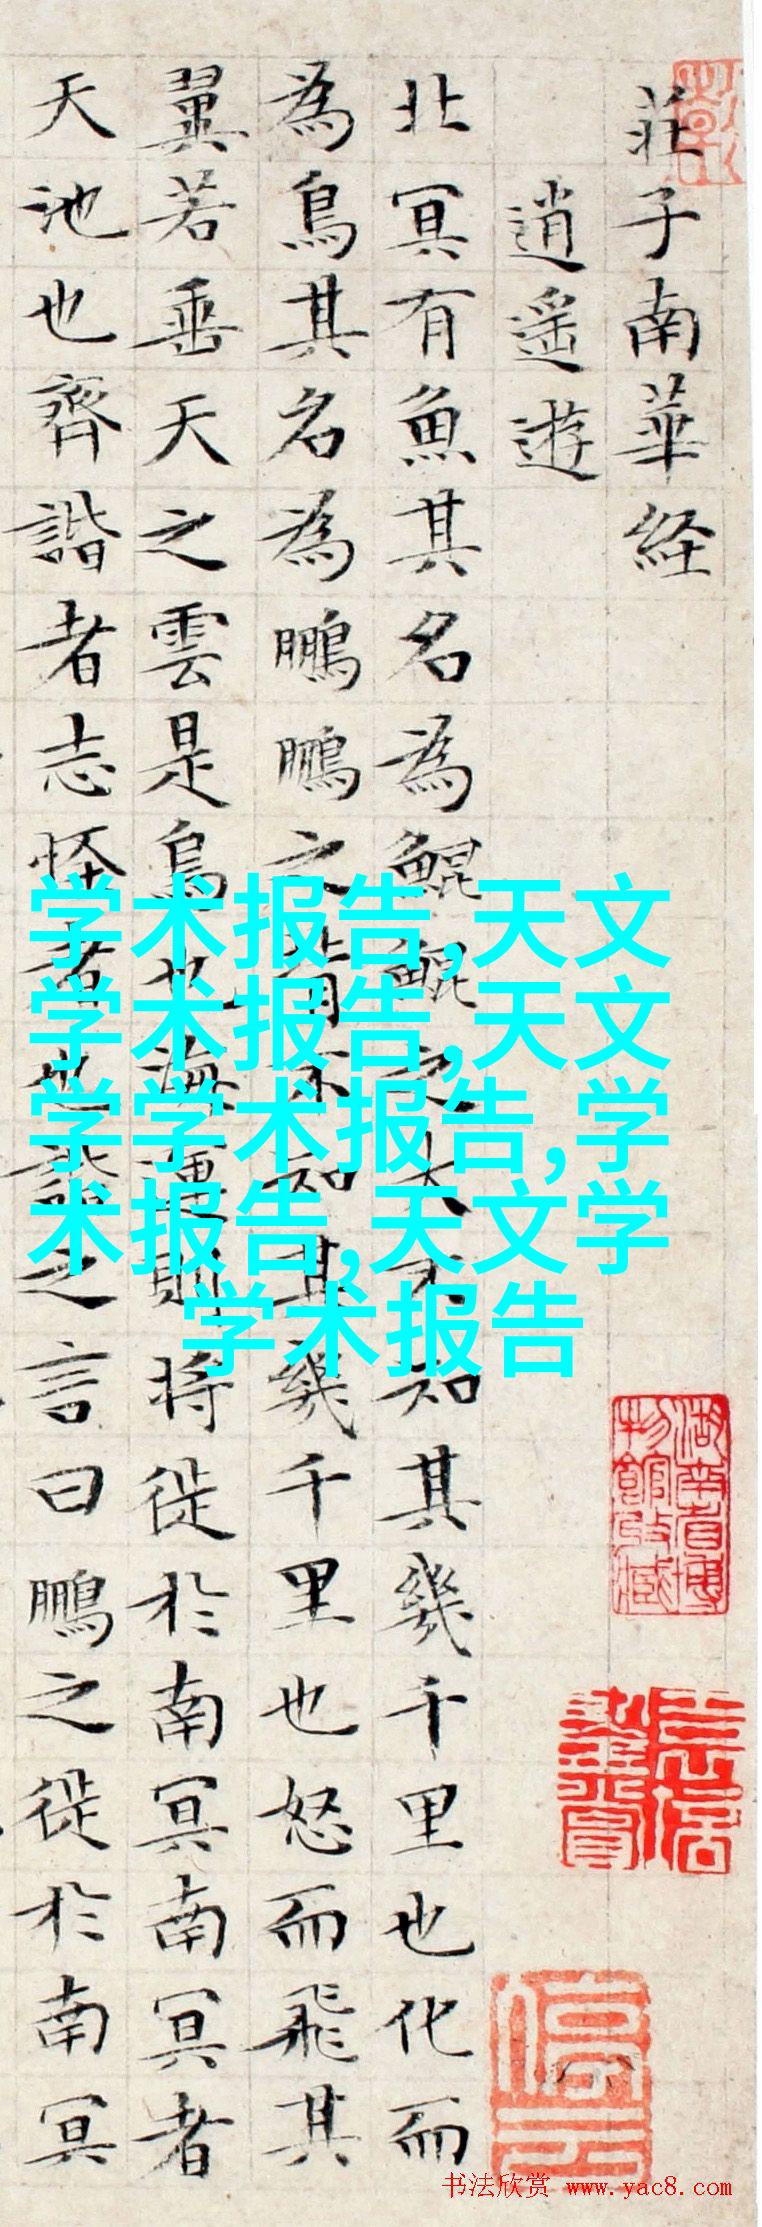 莊子南華経
逍遥遊
北冥有魚其名為鯤鯤之大不知其幾千里也化而
為鳥其名為鵬鵬之背不知其幾千里也怒而飛其
翼若垂天之雲是鳥也海運則将徙於南冥南冥者
天池也齊諧者志怪者也諧之言曰鵬之徙於南冥
学术报告,天文
学术报告,天文
学学术报告,学
术报告,天文学
学术报告
湖南省博
物館收藏
停云
书法欣赏 www.yac8.com